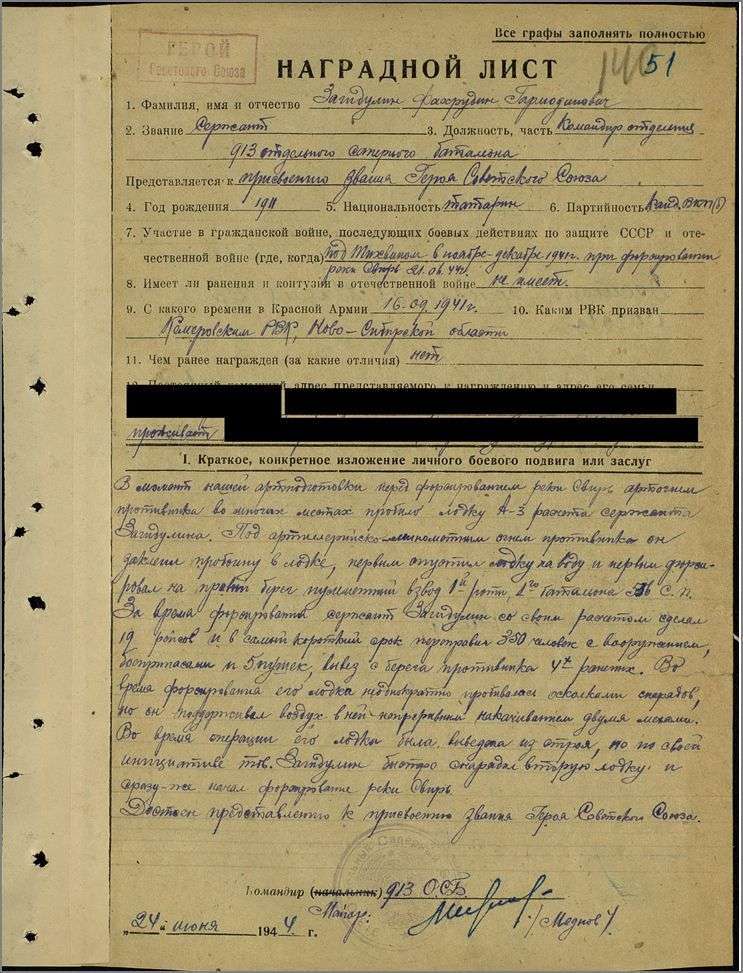 Все графы заполнять полностью
ГЕРОЙ
Советского Союза
140 51
НАГРАДНОЙ ЛИСТ
1. Фамилия, имя и отчество Загидулин Фахрудин
2. Звание Сержант 3. Должность, часть Командир отделения
913 отдельного саперного батальона
Представляется к присвоению звания Героя Советского Союза
4. Год рождения 1911 5. Национальность татарин 6. Партийность Канд. ВКП(б)
7. Участие в гражданской войне, последующих боевых действиях по защите СССР и оте-
чественной войне (где, когда) под Тихвином в ноябре-декабре 1941г. при форсировании
реки Свирь 21.06.44г.
8. Имеет ли ранения и контузии в отечественной войне не имеет.
9. С какого времени в Красной Армии 16.09.1941г. 10. Каким РВК призван
Кемеровским РВК, Ново-Сибирской области
11. Чем ранее награжден (за какие отличия) нет
проживает
I. Краткое, конкретное изложение личного боевого подвига или заслуг
В момент нашей артподготовки перед форсированием реки Свирь артогнем
противника во многих местах пробило лодку А-3 расчета сержанта
Загидулина. Под артиллерийско-минометным огнем противника он
заклеил пробоину в лодке, первым опустил лодку на воду и первым форси-
ровал на правый берег пулеметный взвод 1й роты, 1го батальона 536 С.П.
За время форсирования сержант Загидулин со своим расчетом сделал
19 рейсов и в самый короткий срок переправил 350 человек с вооружением,
боеприпасами и 5 пушек, вывез с берега противника 4х раненых. Во
время форсирования его лодка неоднократно пробивалась осколками снарядов,
но он поддерживал воздух в ней непрерывным накачиванием двумя мехами.
Во время операции его лодка была выведена из строя, но по своей
инициативе тов. Загидулин быстро снарядил вторую лодку и
сразу-же начал форсирование реки Свирь
Достоен представлению к присвоению звания Героя Советского Союза.
Командир (начальник) 913 ОСБ
Майор: /Меднов/
„24" июня 1944 г.